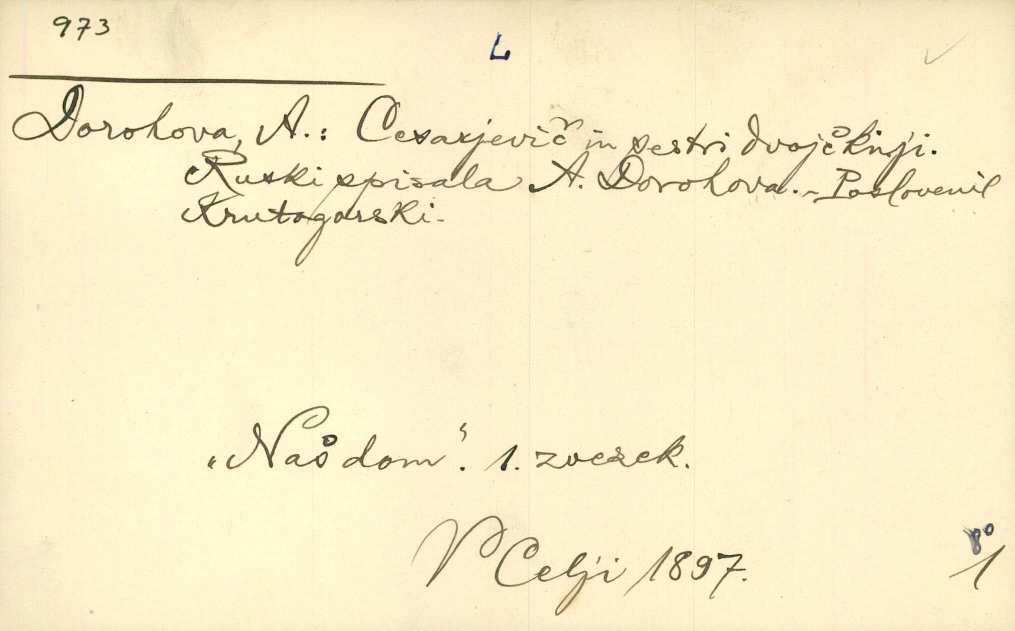 973
L
Dorohova, A.: Cesarjevič in sestri dvojčkinji.
Ruski spisala A. Dorohova. - Poslovenil
Krutogorski. -
„Naš dom“. 1. zvezek.
V Celji 1897.
8°
1